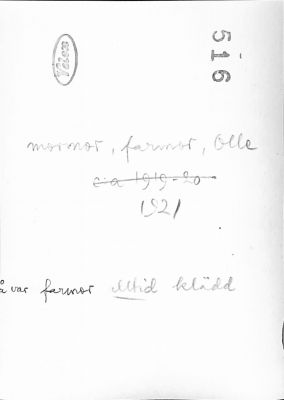 Velox
516
mormor, farmor, Olle
c:a 1919-20
1921
å var farmor alltid klädd